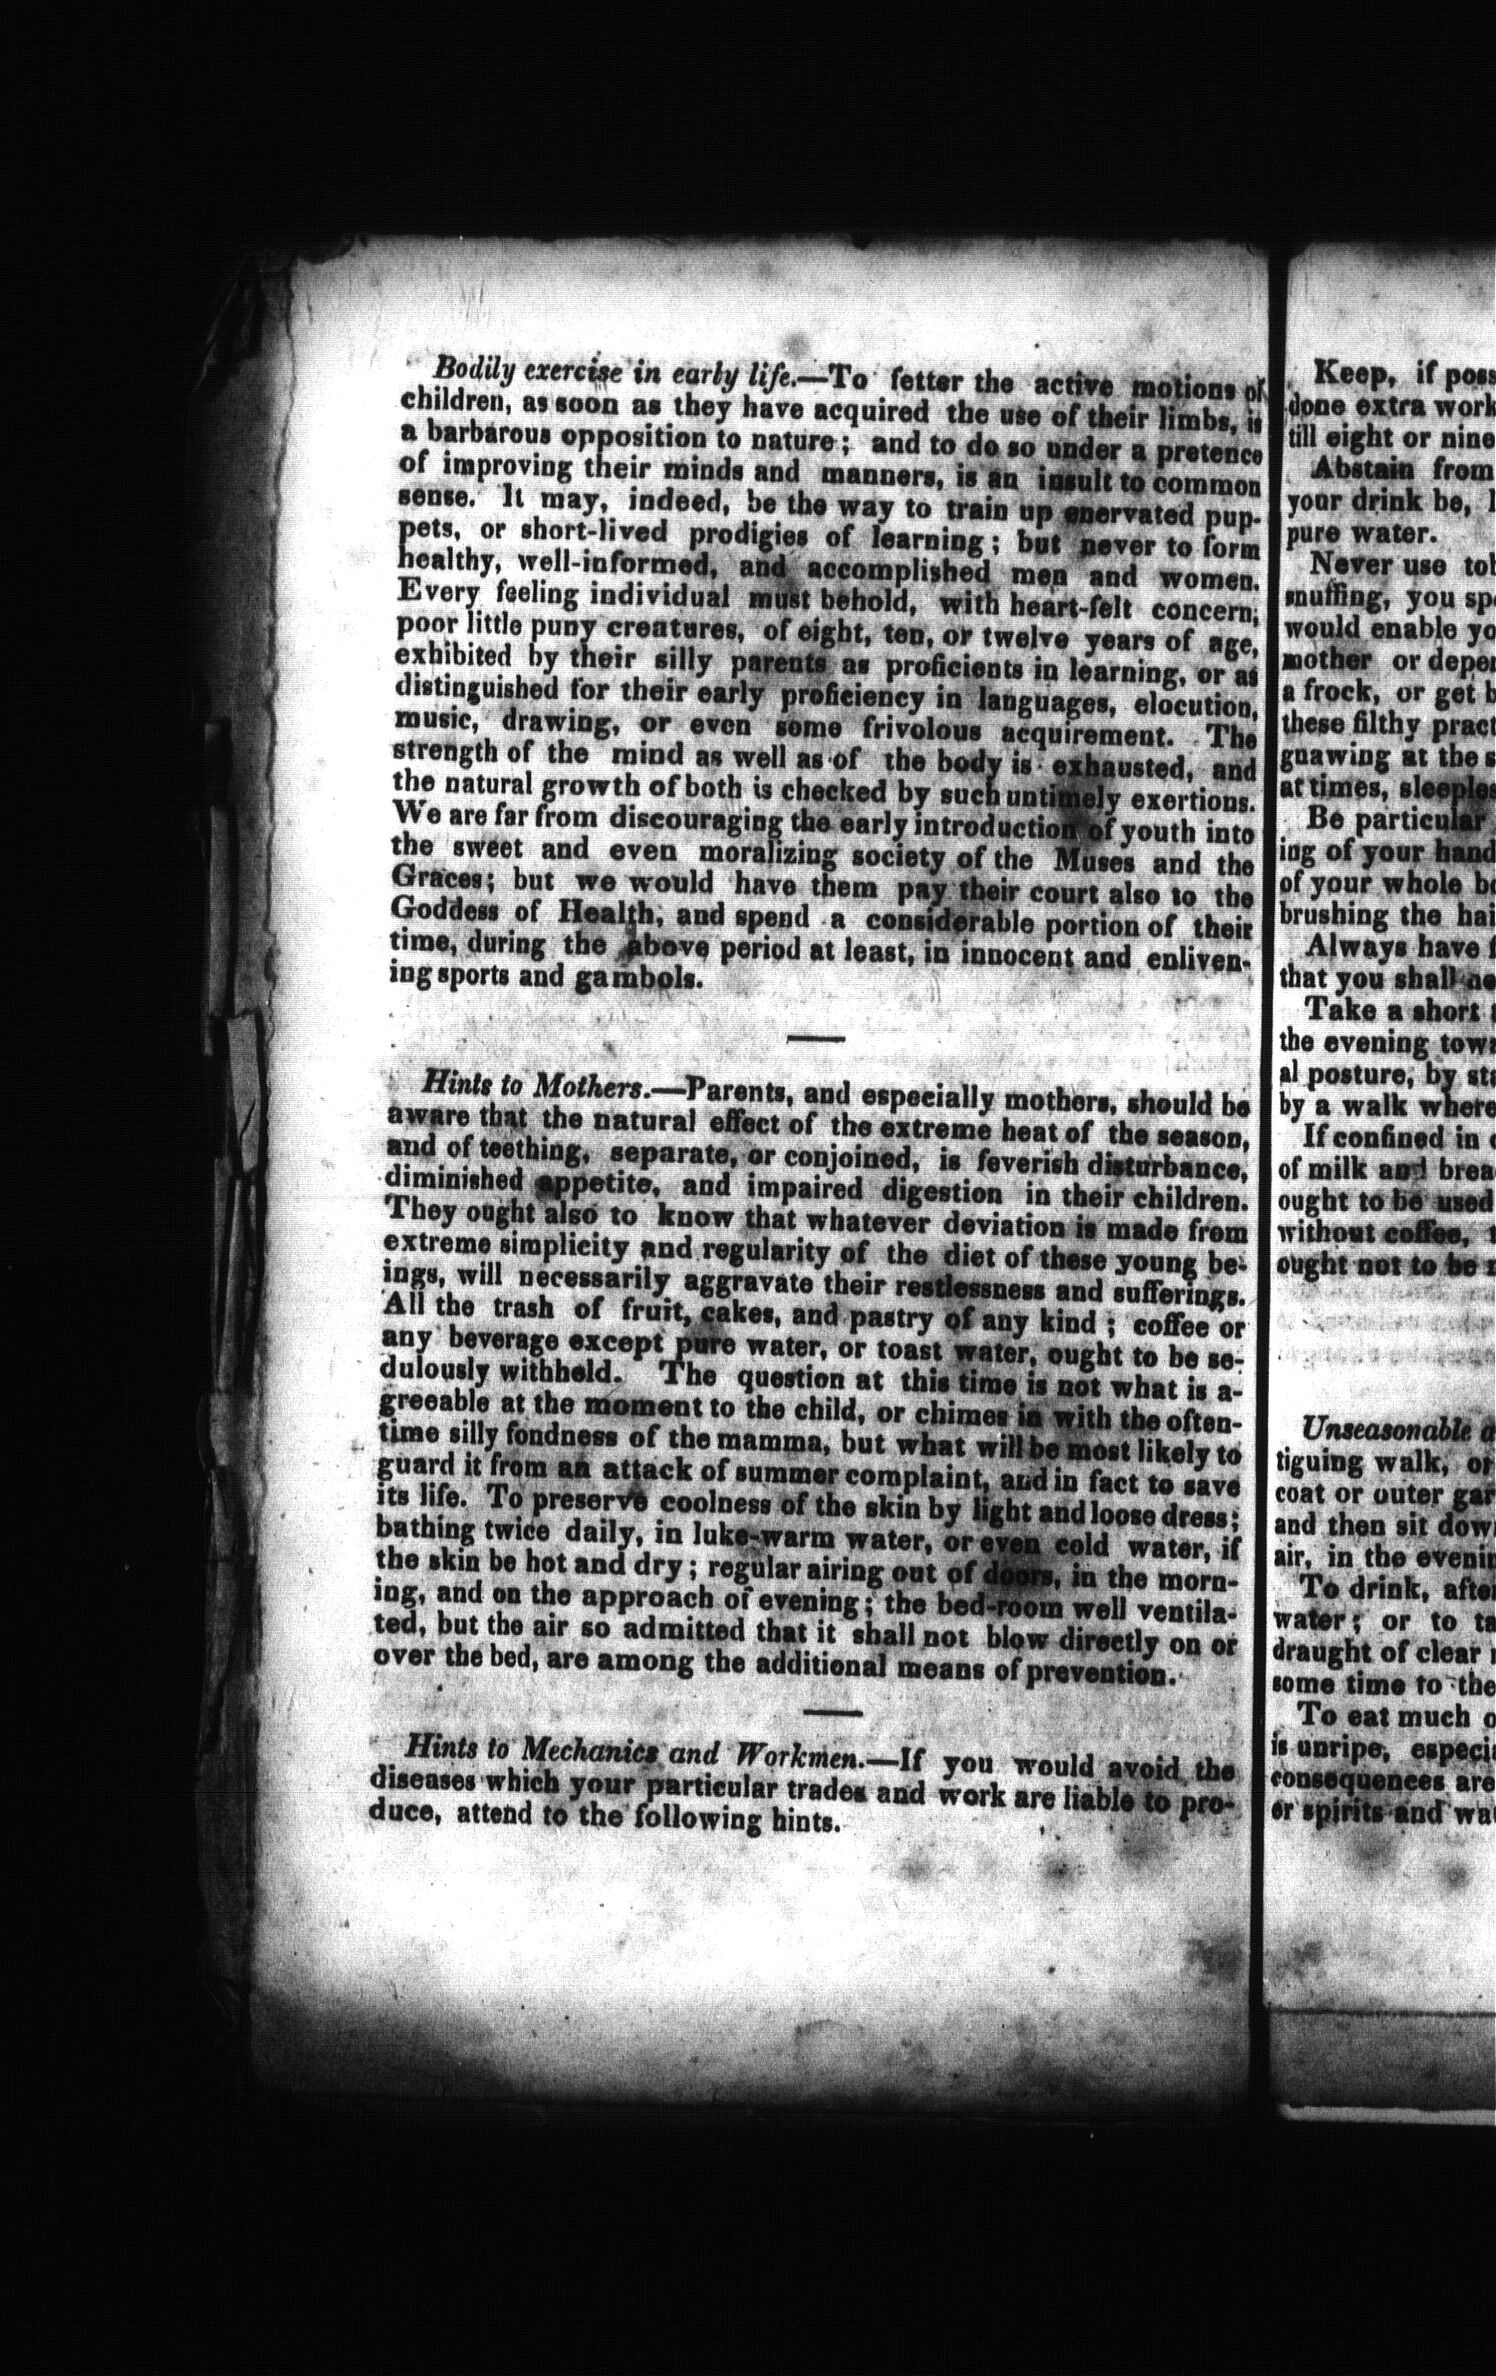 Bodily exercise in early life.—To fetter the active motions of
children, as soon as they have acquired the use of their limbs, is
a barbarous opposition to nature; and to do so under a pretence
of improving their minds and manners, is an insult to common
sense. It may, indeed, be the way to train up enervated pup-
pets, or short-lived prodigies of learning; but never to form
healthy, well-informed, and accomplished men and women.
Every feeling individual must behold, with heart-felt concern,
poor little puny creatures, of eight, ten, or twelve years of age,
exhibited by their silly parents as proficients in learning, or as
distinguished for their early proficiency in languages, elocution,
music, drawing, or even some frivolous acquirement. The
strength of the mind as well as of the body is exhausted, and
the natural growth of both is checked by such untimely exertions.
We are far from discouraging the early introduction of youth into
the sweet and even moralizing society of the Muses and the
Graces; but we would have them pay their court also to the
Goddess of Health, and spend a considerable portion of their
time, during the above period at least, in innocent and enliven-
ing sports and gambols.
Hints to Mothers.—Parents, and especially mothers, should be
aware that the natural effect of the extreme heat of the season,
and of teething, separate, or conjoined, is feverish disturbance,
diminished appetite, and impaired digestion in their children.
They ought also to know that whatever deviation is made from
extreme simplicity and regularity of the diet of these young be-
ings, will necessarily aggravate their restlessness and sufferings.
All the trash of fruit, cakes, and pastry of any kind; coffee or
any beverage except pure water, or toast water, ought to be se-
dulously withheld. The question at this time is not what is a-
greeable at the moment to the child, or chimes in with the often-
time silly fondness of the mamma, but what will be most likely to
guard it from an attack of summer complaint, and in fact to save
its life. To preserve coolness of the skin by light and loose dress;
bathing twice daily, in luke-warm water, or even cold water, if
the skin be hot and dry; regular airing out of doors, in the morn-
ing, and on the approach of evening; the bed-room well ventila-
ted, but the air so admitted that it shall not blow directly on or
over the bed, are among the additional means of prevention.
Hints to Mechanics and Workmen.—If you would avoid the
diseases which your particular trades and work are liable to pro-
duce, attend to the following hints.
Keep, if poss
done extra work
till eight or nine
Abstain from
your drink be, l
pure water.
Never use tob
snuffing, you spe
would enable yo
mother or depen
a frock, or get b
these filthy pract
gnawing at the s
at times, sleeples
Be particular
ing of your hand
of your whole bo
brushing the hai
Always have f
that you shall ne
Take a short
the evening towa
al posture, by sta
by a walk where
If confined in
of milk and brea
ought to be used
without coffee,
ought not to be
Unseasonable a
tiguing walk, or
coat or outer gar
and then sit dow
air, in the evenin
To drink, after
water; or to ta
draught of clear
some time to the
To eat much o
is unripe, especia
consequences are
or spirits and wat